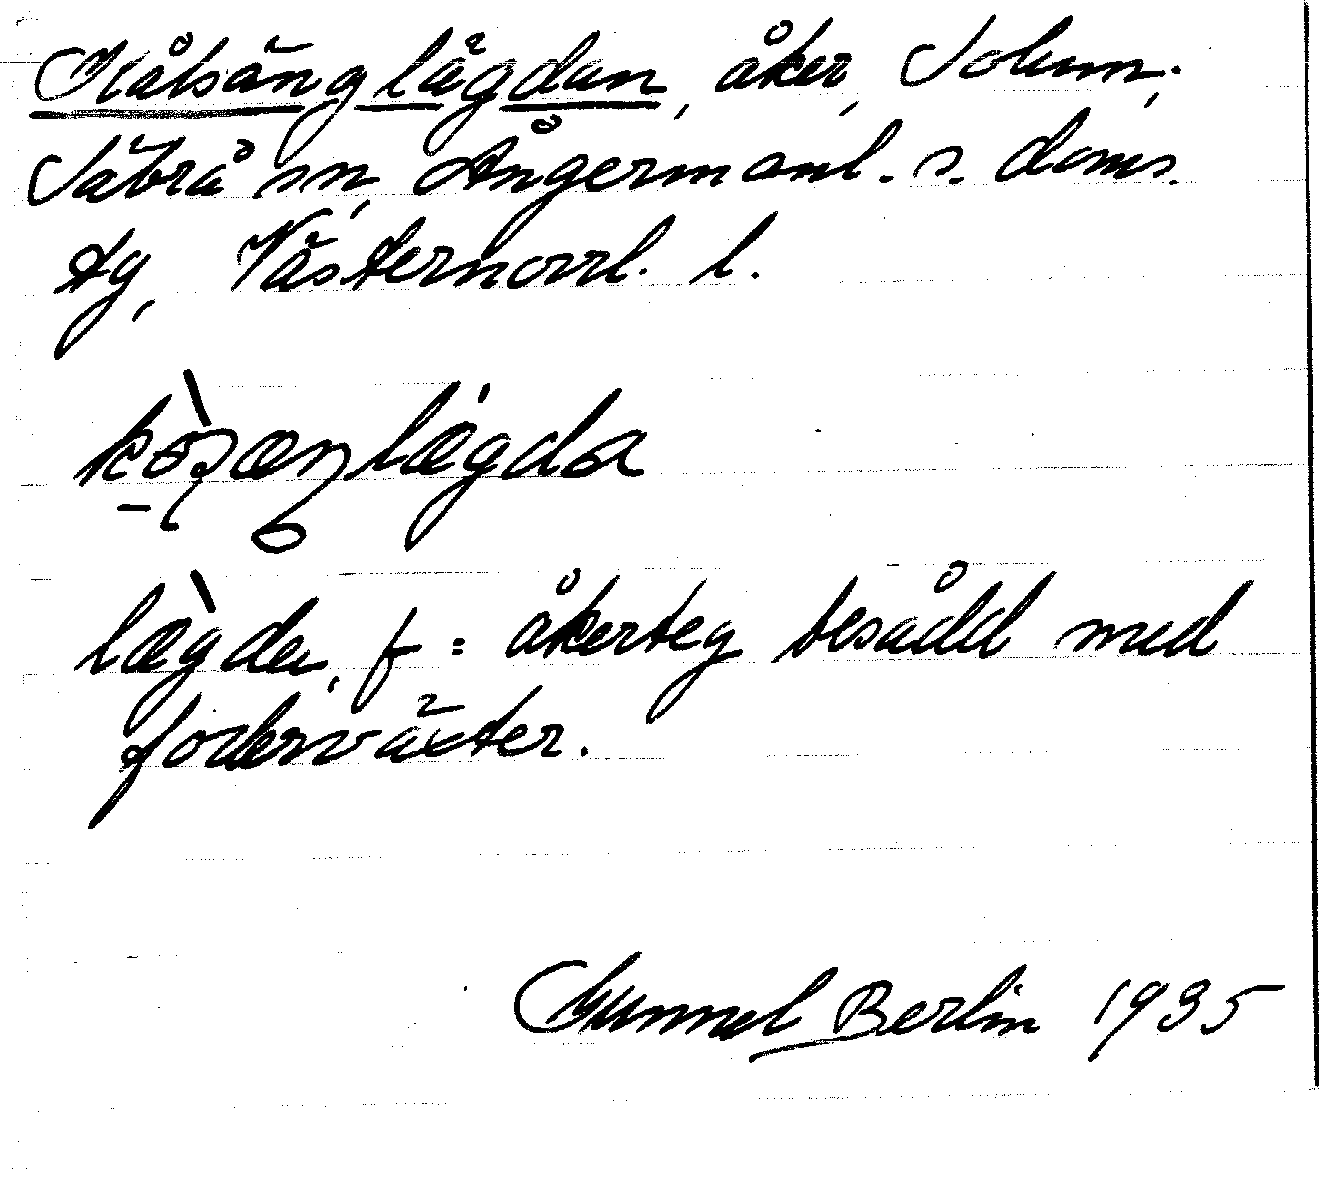 Kålsänglägdan, åker, Solum,
Säbrå sn, Ångermanl. s. doms.
tg, Västernorrl. l.
lægda, f: åkerteg besådd med
foderväxter.
Gunnel Berlin 1935